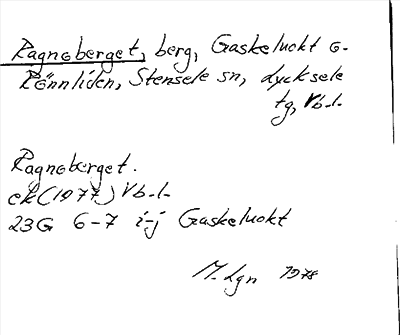 Ragnoberget, berg, Gaskeluckt o.
Rönnliden, Stensele sn, Lycksele
tg, Vb.l.
Ragnoberget.
ek (1977) Vb.l.
23G 6-7 i-j Gaskeluokt
M. Lgn 1978